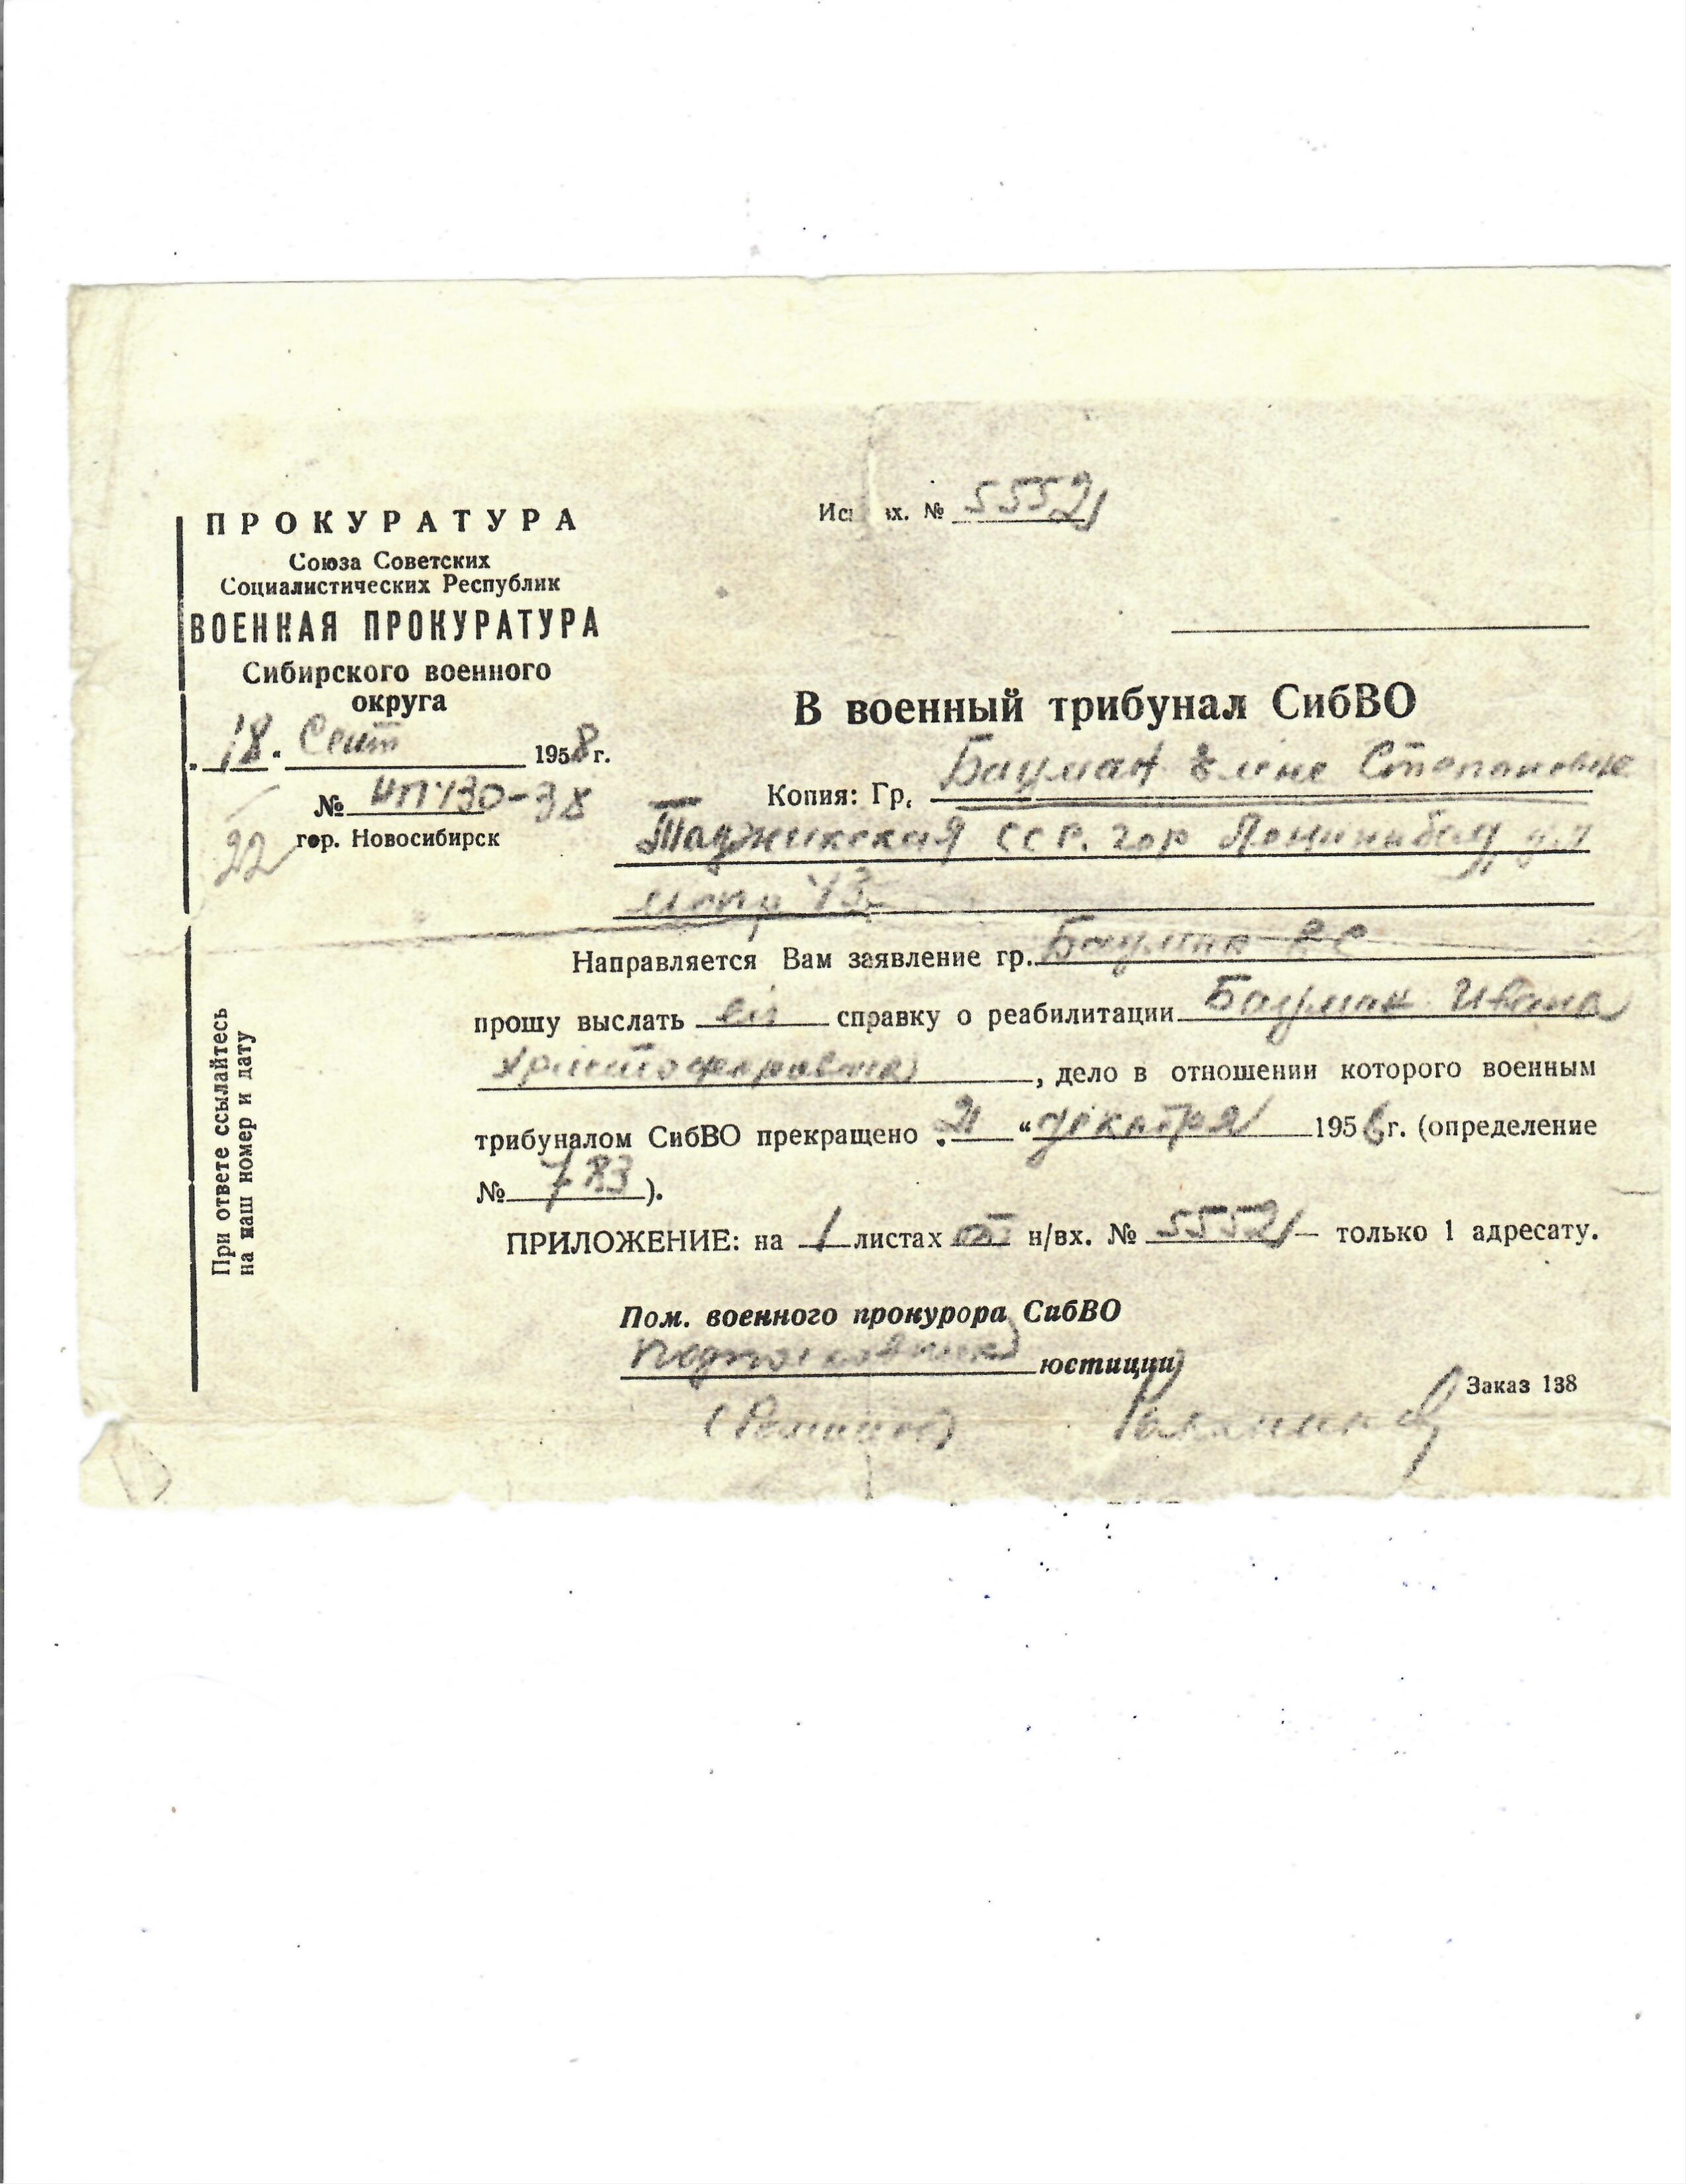 ПРОКУРАТУРА
Союза Советских
Социалистических Республик
ВОЕННАЯ ПРОКУРАТУРА
Сибирского военного
округа
„18“ Сент 1958 г.
№
22
гор. Новосибирск
При ответе ссылайтесь
на наш номер и дату
х. № 55521
В военный трибунал СибВО
Копия: Гр. Бауман Елене Степановне
Таджикская ССР. гор Ленинабад ул
Мопр 43
Направляется Вам заявление гр. Бауман ЕС
прошу выслать ей справку о реабилитации Бауман Ивана
Христофоровича, дело в отношении которого военным
трибуналом СибВО прекращено „21“ декабря 1956 г. (определение
№ 783).
ПРИЛОЖЕНИЕ: на 1 листах н/вх. № 55521 — только 1 адресату.
Пом. военного прокурора СибВО
подполковник юстиции
Заказ 138